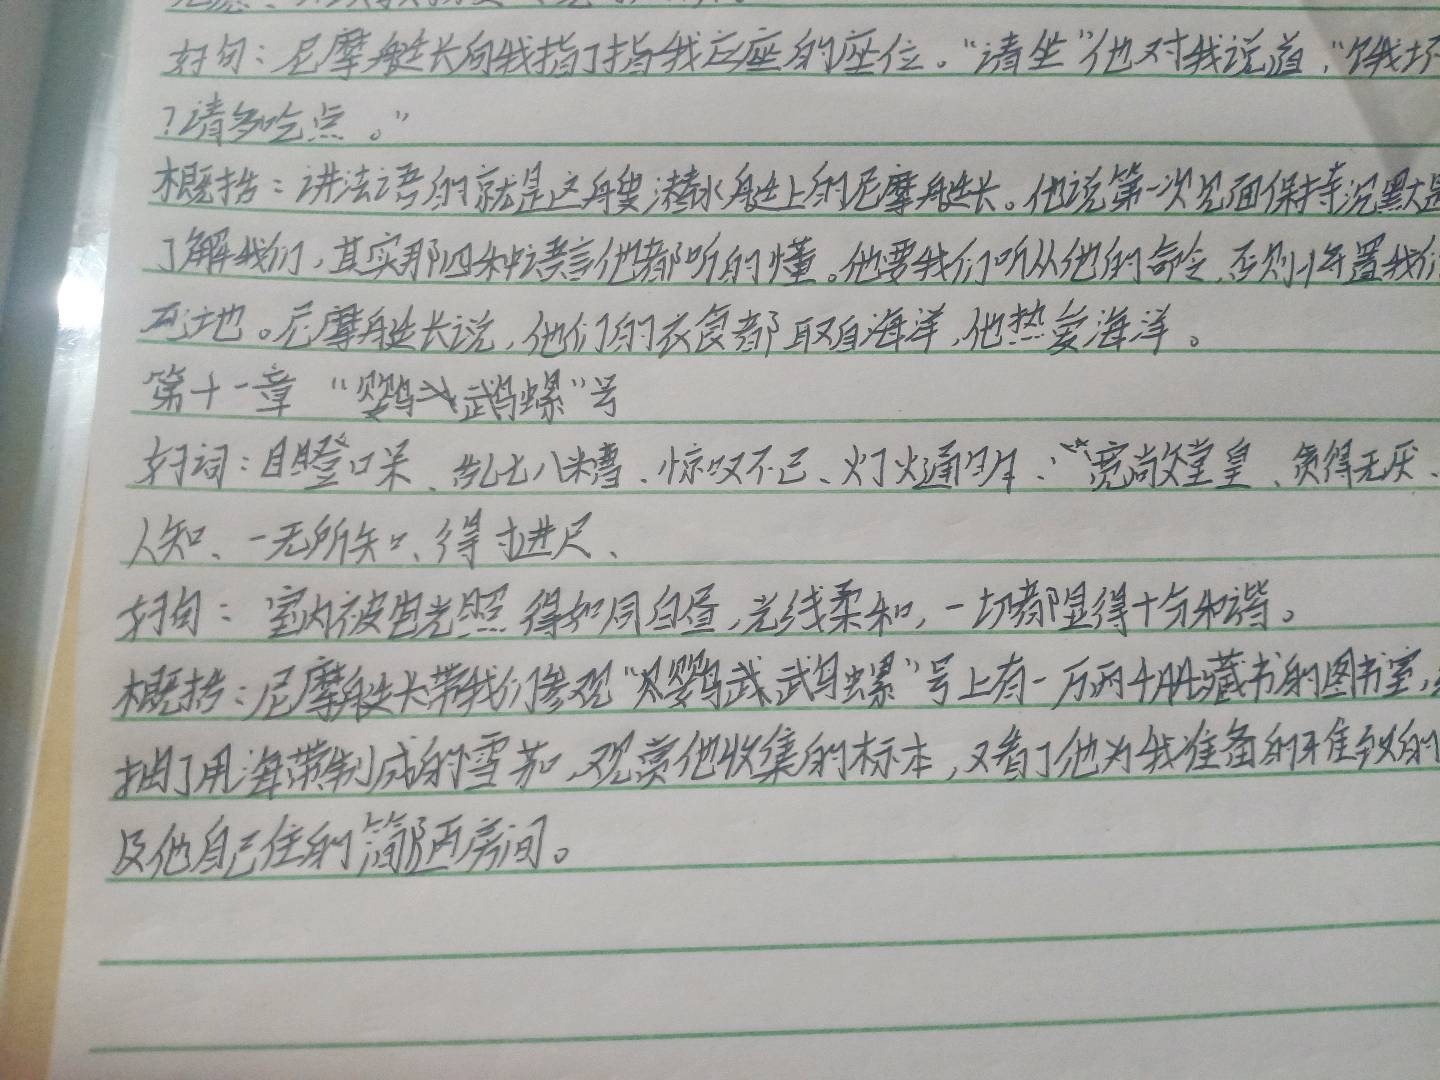 好句：尼摩艇长向我指了指我应座的座位。“请坐”他对我说道，“饿坏
？请多吃点。”
概括：讲法语的就是这艘潜水艇上的尼摩艇长。他说第一次见面保持沉默是
了解我们，其实那四种语言他都听的懂。他要我们听从他的命令，否则将置我们
死地。尼摩艇长说，他们的衣食都取自海洋，他热爱海洋。
第十一章 “鹦鹉螺”号
好词：目瞪口呆、乱七八糟、惊叹不已、灯火通明、宽敞堂皇、贪得无厌、
人知、一无所知、得寸进尺、
好句：室内被电光照得如同白昼，光线柔和，一切都显得十分和谐。
概括：尼摩艇长带我们参观“鹦鹉螺”号上有一万两千册藏书的图书室，
抽了用海带制成的雪茄，观赏他收集的标本，又看了他为我准备的雅致的
及他自己住的简陋房间。